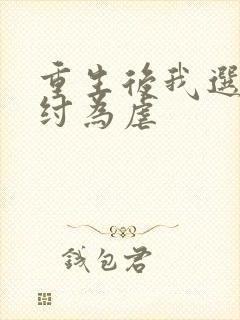 重生後我選
紂為虐
錢包君